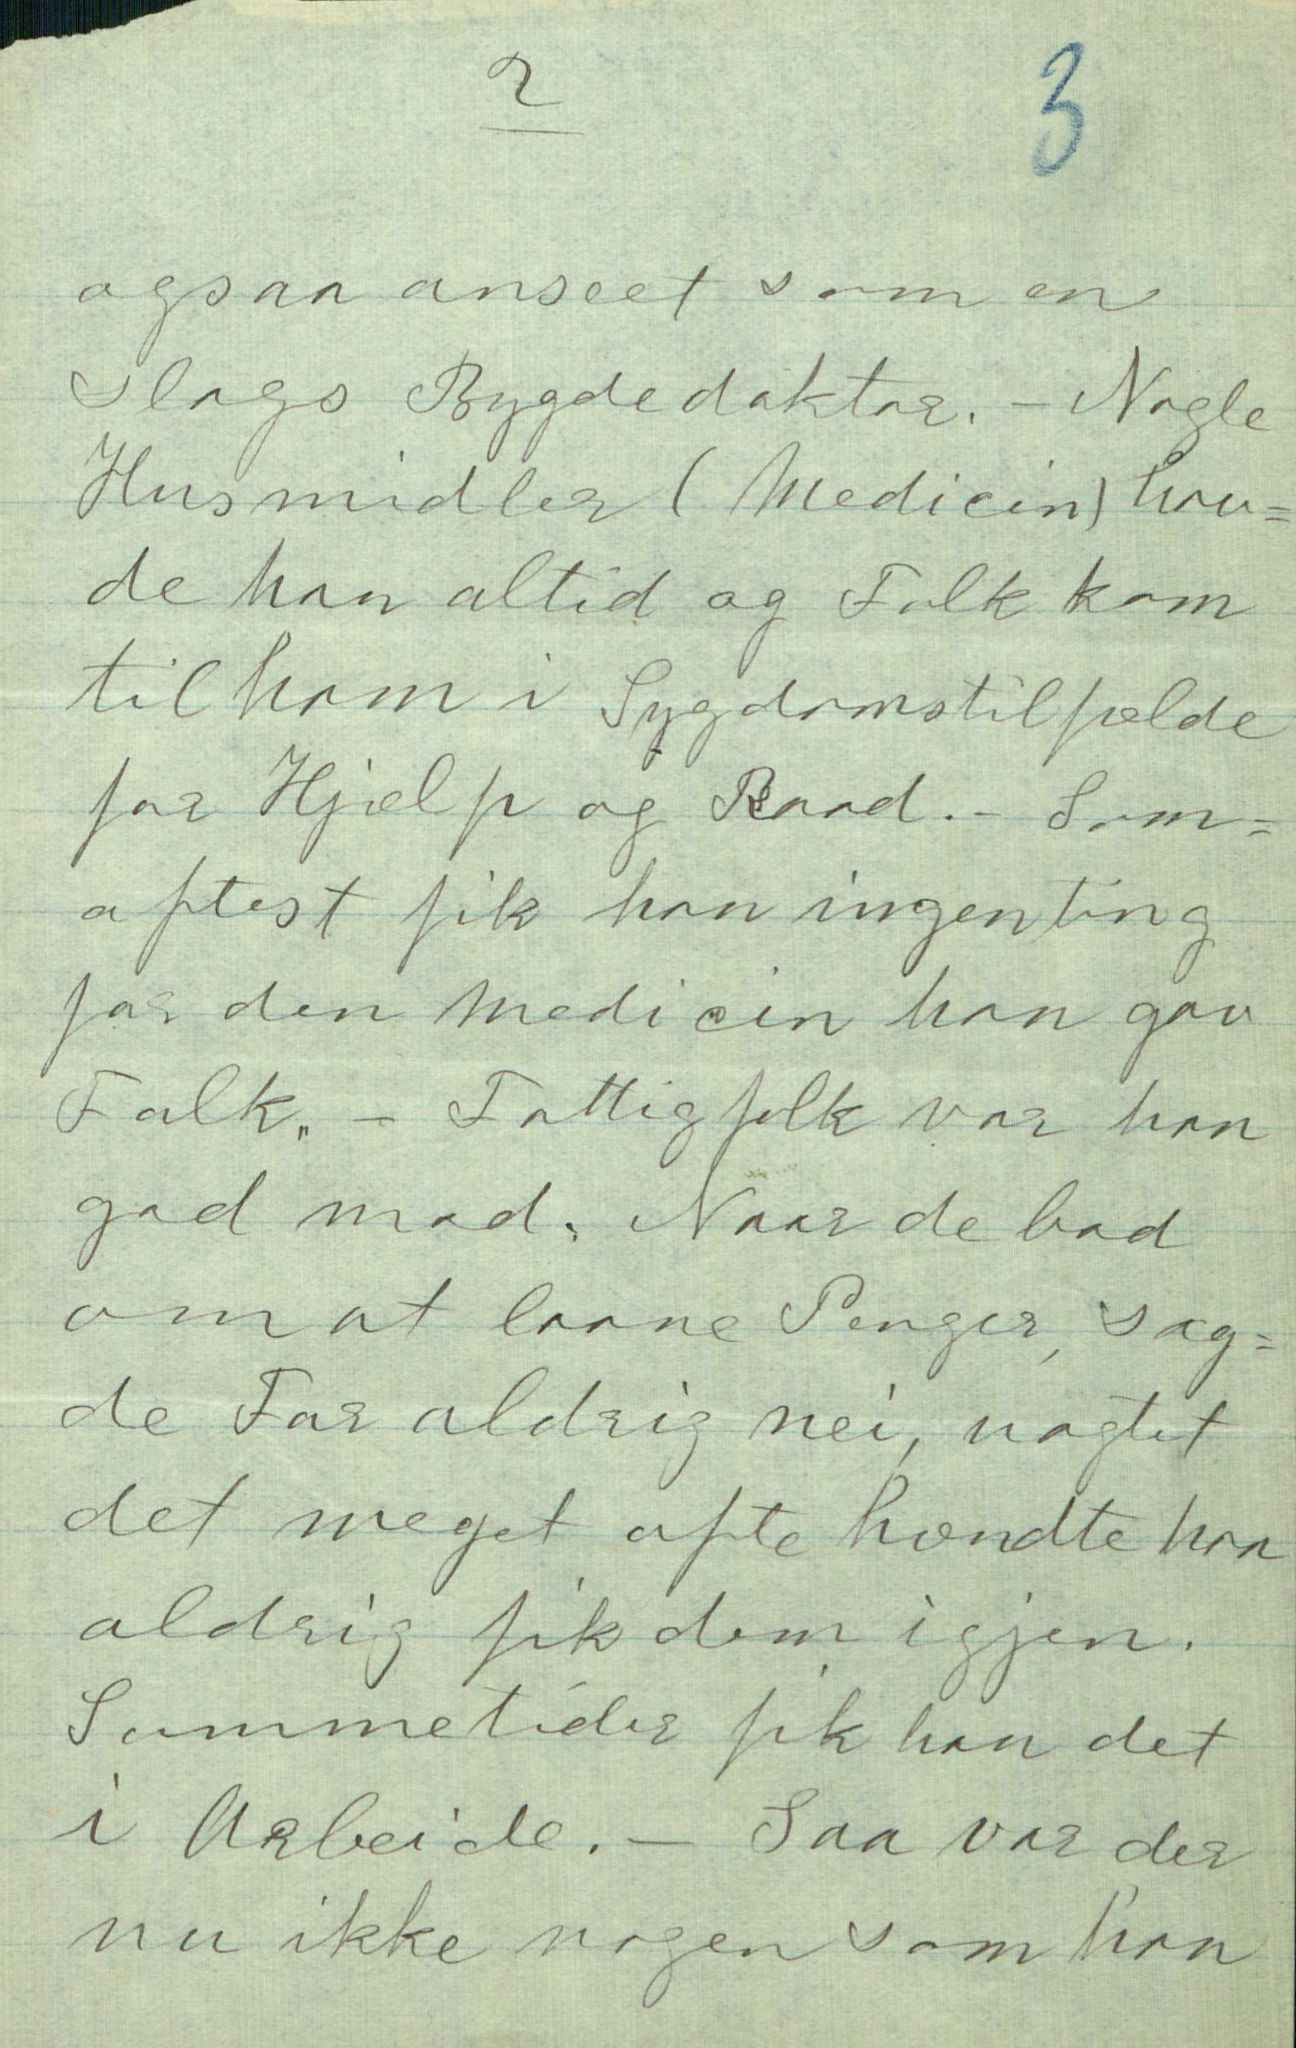 2
3
ogsaa anseet som en
Slags Bygdedoktor. - Nogle
Husmidler (Medicin) hav=
de han altid og Folk kom
til ham i Sygdomstilfælde
for Hjælp og Raad. - Som=
oftest fik han ingenting
for den Medicin han gav
Folk. - Fattigfolk var han
god mod. Naar de bad
om at laane Penger, sag=
de Far aldrig nei, uagtet
det meget ofte hændte han
aldrig fik dem igjen.
Sommetider fik han det
i Arbeide. - Saa var der
nu ikke nogen som han